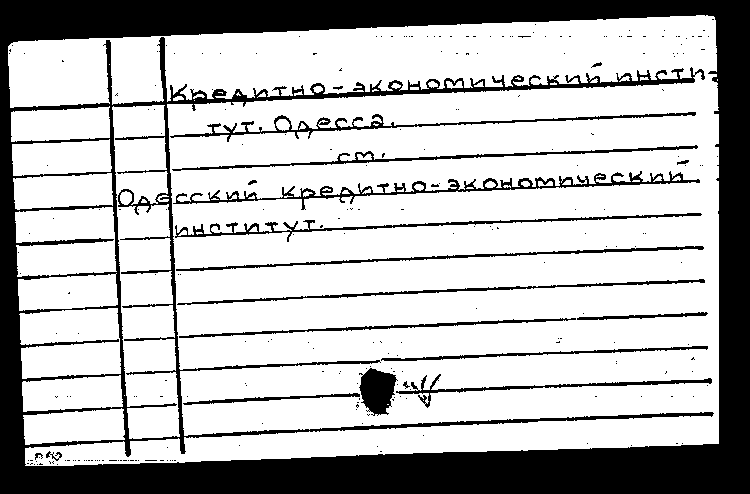 Кредитно-экономический инсти-
тут. Одесса.
см.
Одесский кредитно-экономический
институт.